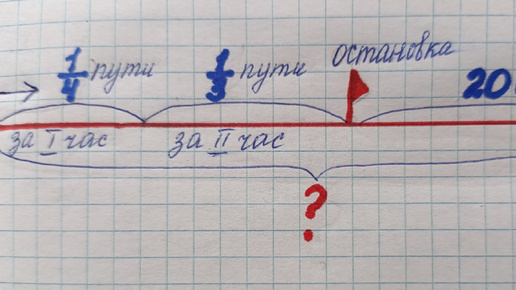 1/4 пути 1/3 пути остановка 20
за I час за II час
?